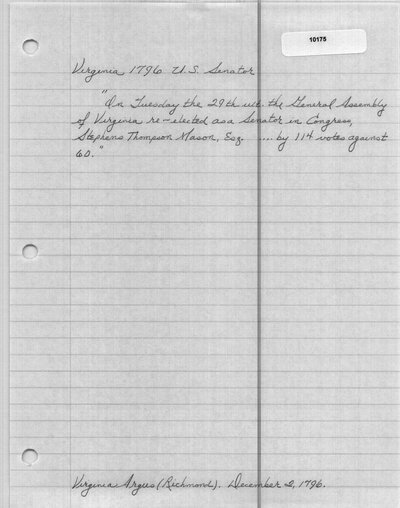 10175
Virginia 1796 U.S. Senator
"On Tuesday the 29th ult. the General Assembly
of Virginia re-elected as a Senator in Congress,
Stephens Thompson Mason, Esq. .... by 114 votes against
60."
Virginia Argus (Richmond). December 2, 1796.